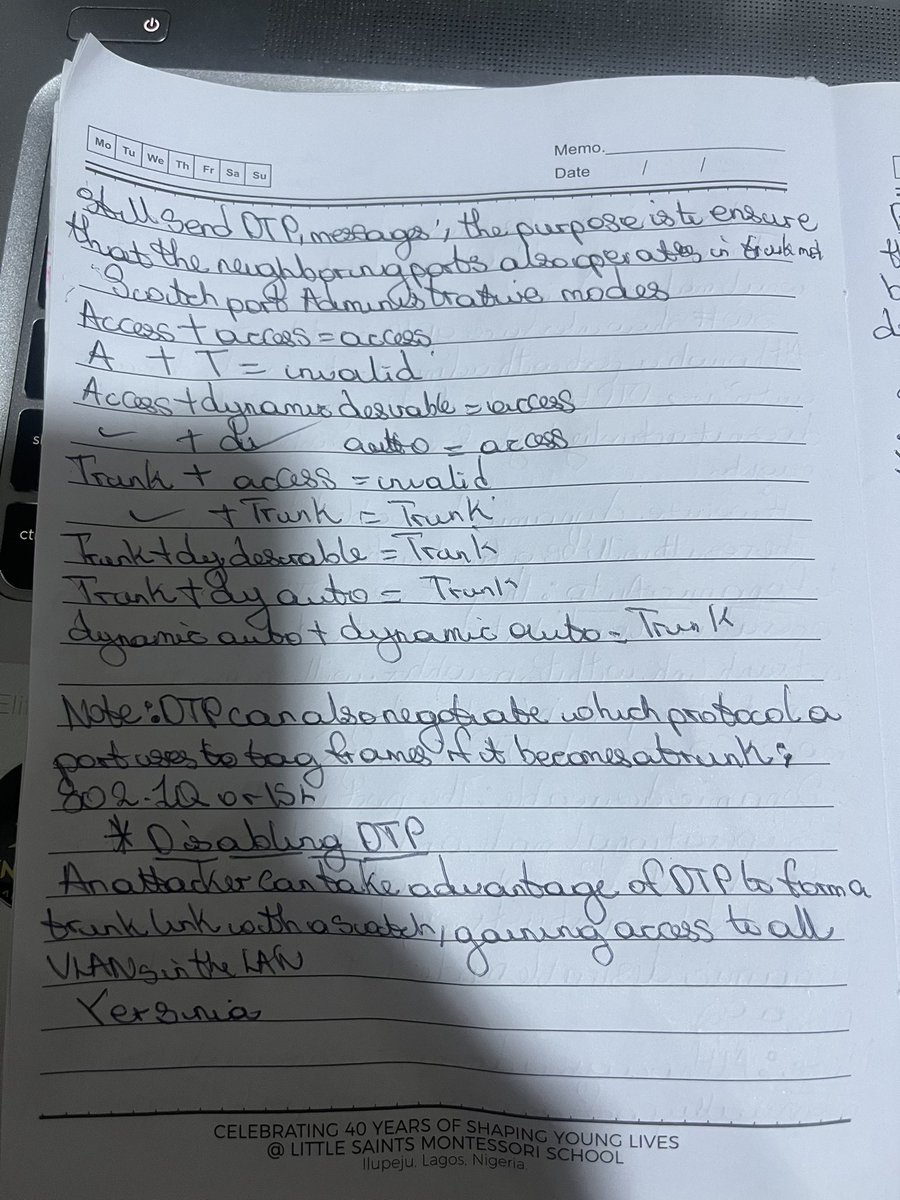 Mo Tu We Th Fr Sa Su
Memo.
Date / /
still send DTP, messages', the purpose is to ensure
that the neighboring ports also operates in trunk
Switch port Administrative modes
Access + access = access
A + T = invalid
Access + dynamic desirable = access
✓ + dy ✓ auto = access
Trunk + access = invalid
✓ + Trunk = Trunk
Trunk + dy desirable = Trunk
Trunk + dy auto = Trunk
dynamic auto + dynamic auto = Trunk
Note: DTP can also negotiate which protocol a
port uses to tag frames if it becomes a trunk;
802.1Q or ISL
* Disabling DTP
An attacker can take advantage of DTP to form a
trunk link with a switch, gaining access to all
VLANs in the LAN
Yersinia
CELEBRATING 40 YEARS OF SHAPING YOUNG LIVES
@ LITTLE SAINTS MONTESSORI SCHOOL
Ilupeju, Lagos, Nigeria.
ct